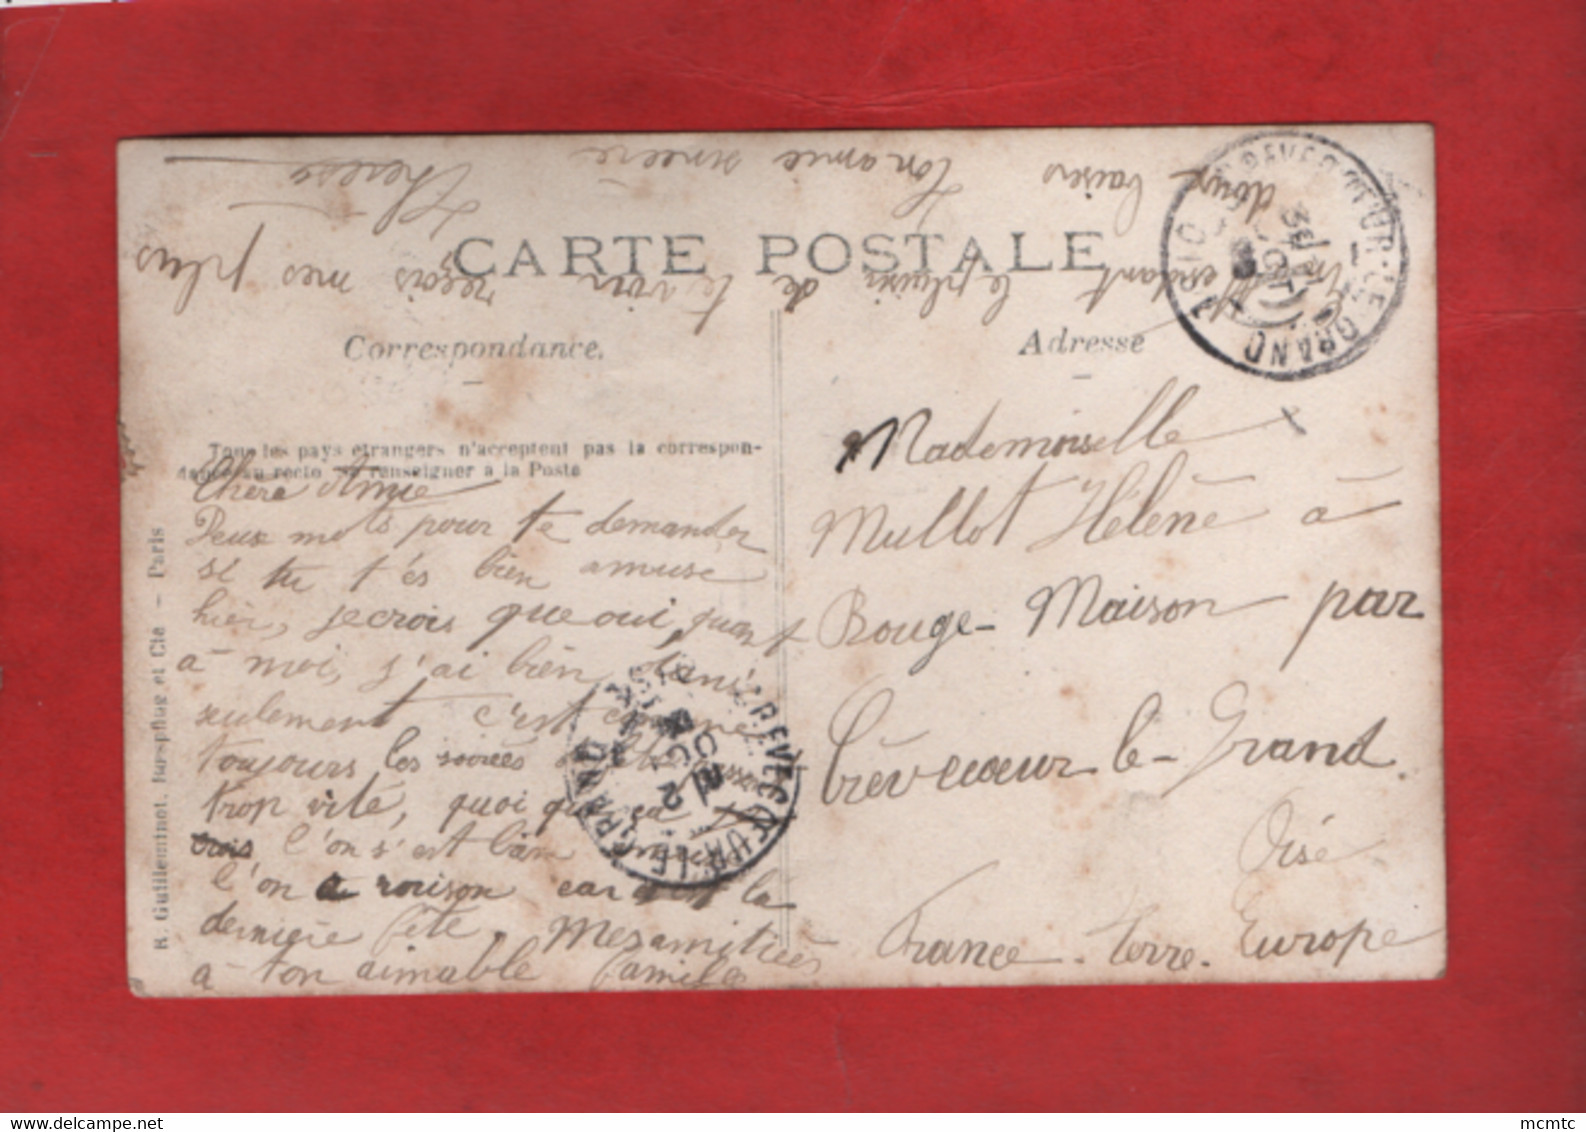 CARTE POSTALE
Correspondance.
Adresse
Tous les pays étrangers n'acceptent pas la correspon-
dance au recto se renseigner à la Poste
Chère Amie
Deux mots pour te demander
si tu t'es bien amusé
hier, je crois que oui, quant
à moi, j'ai bien dansé
seulement c'est comme
toujours les soirées
trop vite, quoi que ça
trois l'on s'est bien
l'on a raison car c'est la
dernière fête. Mes amitiées
à ton aimable famille
En attendant le plaisir de te voir reçois mes plus
doux baisers Ton amie sincère
Theresa
Mademoiselle
Mullot Hélène à
Rouge-Maison par
Crèvecoeur-le-Grand.
Oise
France. Terre. Europe
R. Guilleminot, Boespflug et Cie - Paris
CREVECŒUR-LE-GRAND
CREVECŒUR-LE-GRAND
mcmtc